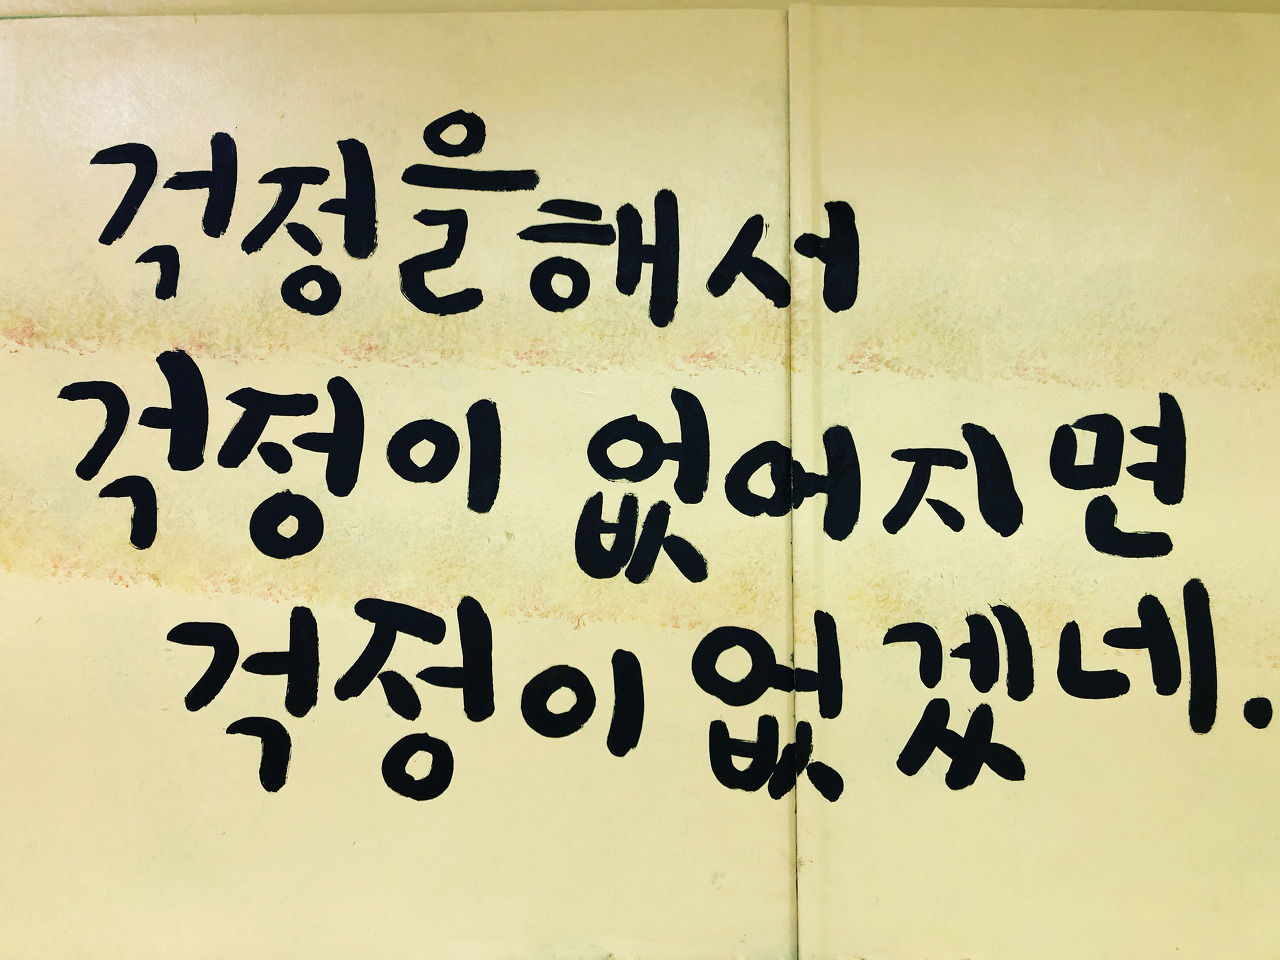 걱정을해서
걱정이 없어지면
걱정이 없겠네.